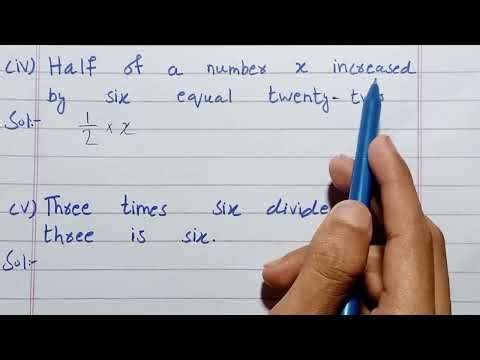 (iv) Half of a number x increased
by six equal twenty-two
Sol:- 1/2 × x
(v) Three times six divide
three is six.
Sol:-